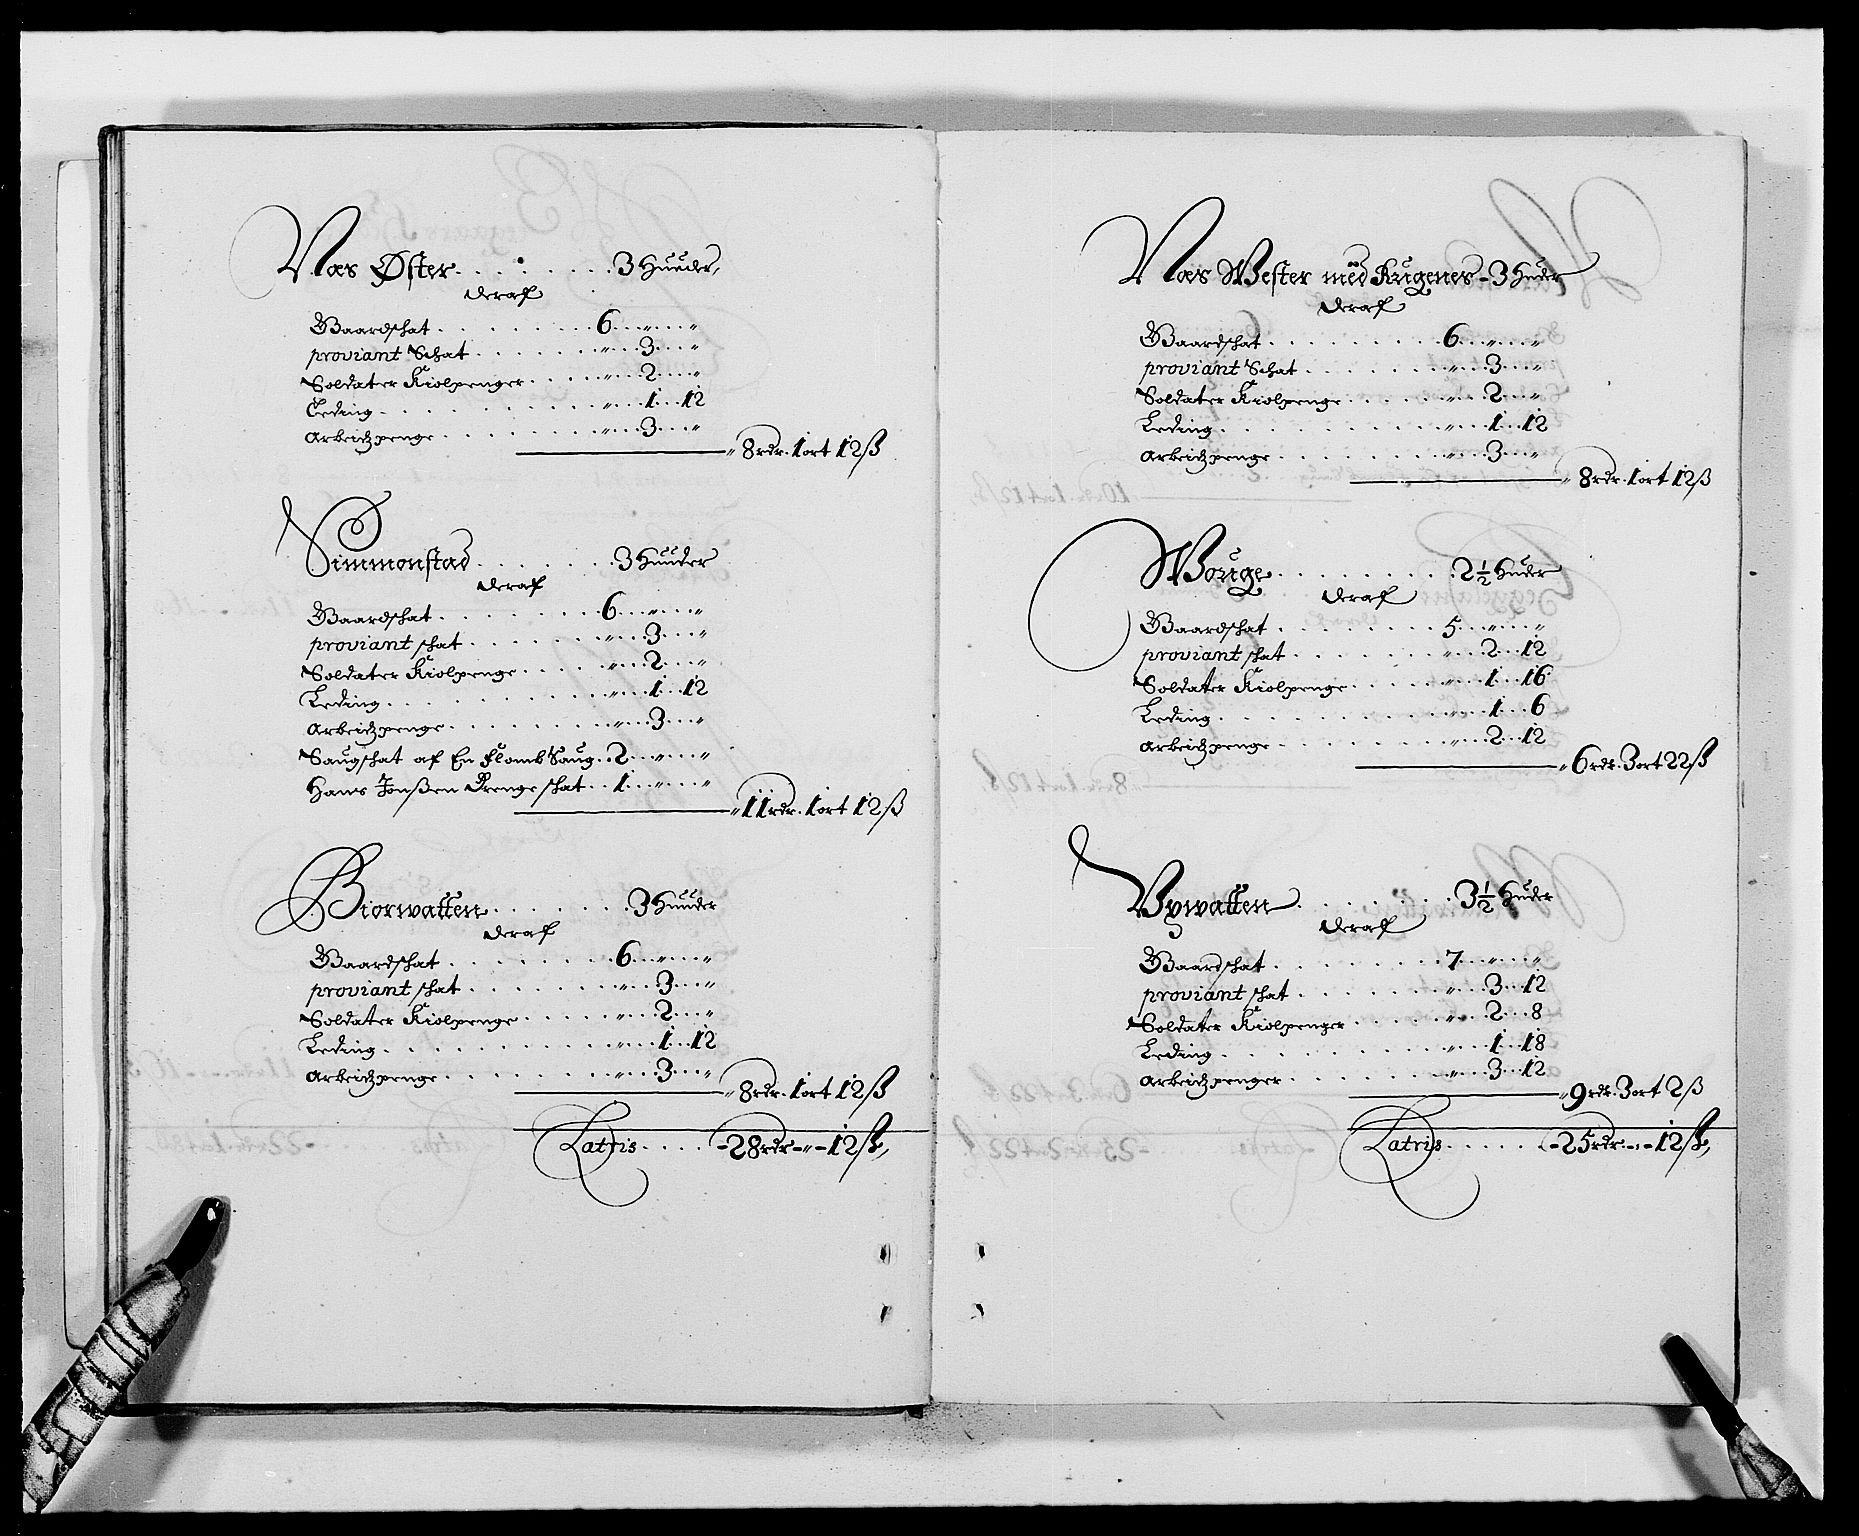 Næs Øster . . . . . . . . 3 Huuder,
deraf
Gaardschat . . . . . . . 6 . . „ . . „
proviant Schat . . . . . . . „ . . 3 . . „
Soldater Kiolpenger . . . . . „ . . 2 . . „
Leding . . . . . . . . . „ . . 1 . . 12
Arbeidzpenge . . . . . . . . „ . . 3 . . „
„ 8 rdr. 1 ort 12 ß
Simmonstad . . . . . . . 3 Huuder
deraf
Gaardschat . . . . . . . 6 . . „ . . „
proviant schat . . . . . . . „ . . 3 . . „
Soldater Kiolpenge . . . . . „ . . 2 . . „
Leding . . . . . . . . . „ . . 1 . . 12
Arbeidzpenge . . . . . . . . „ . . 3 . . „
Saugschat af En Flomb Saug . . 2 . . „ . . „
Hans Jonßen Drenge schat . . 1 . . „ . . „
„ 11 rdr. 1 ort 12 ß
Biorwatten . . . . . . . 3 Huuder
deraf
Gaardschat . . . . . . . 6 . . „ . . „
proviant schat . . . . . . . „ . . 3 . . „
Soldater Kiolpenge . . . . . „ . . 2 . . „
Leding . . . . . . . . . „ . . 1 . . 12
Arbeidzpenge . . . . . . . . „ . . 3 . . „
„ 8 rdr. 1 ort 12 ß
Latris . . . . - 28 rdr - „ - 12 ß,
Næs Wester med Krugenes - 3 Huder
deraf
Gaardschat . . . . . . . 6 . . „ . . „
proviant Schat . . . . . . . „ . . 3 . . „
Soldater Kiolpenge . . . . . „ . . 2 . . „
Leding . . . . . . . . . „ . . 1 . . 12
Arbeidzpenge . . . . . . . . „ . . 3 . . „
„ 8 rdr. 1 ort 12 ß
Wouge . . . . . . . 2 1/2 Huder
deraf
Gaardschat . . . . . . . 5 . . „ . . „
proviant schat . . . . . . . „ . . 2 . . 12
Soldater Kiolpenge . . . . . „ . . 1 . . 16
Leding . . . . . . . . . „ . . 1 . . 6
Arbeidzpenge . . . . . . . . „ . . 2 . . 12
„ 6 rdr. 3 ort 22 ß
Vywatten . . . . . . . 3 1/2 Huder
deraf
Gaardschat . . . . . . . 7 . . „ . . „
proviant schat . . . . . . . „ . . 3 . . 12
Soldater Kiolpenger . . . . . „ . . 2 . . 8
Leding . . . . . . . . . „ . . 1 . . 18
Arbeidzpenger . . . . . . . . „ . . 3 . . 12
„ 9 rdr. 3 ort 2 ß
Latris . . . . . - 25 rdr - „ - 12 ß,